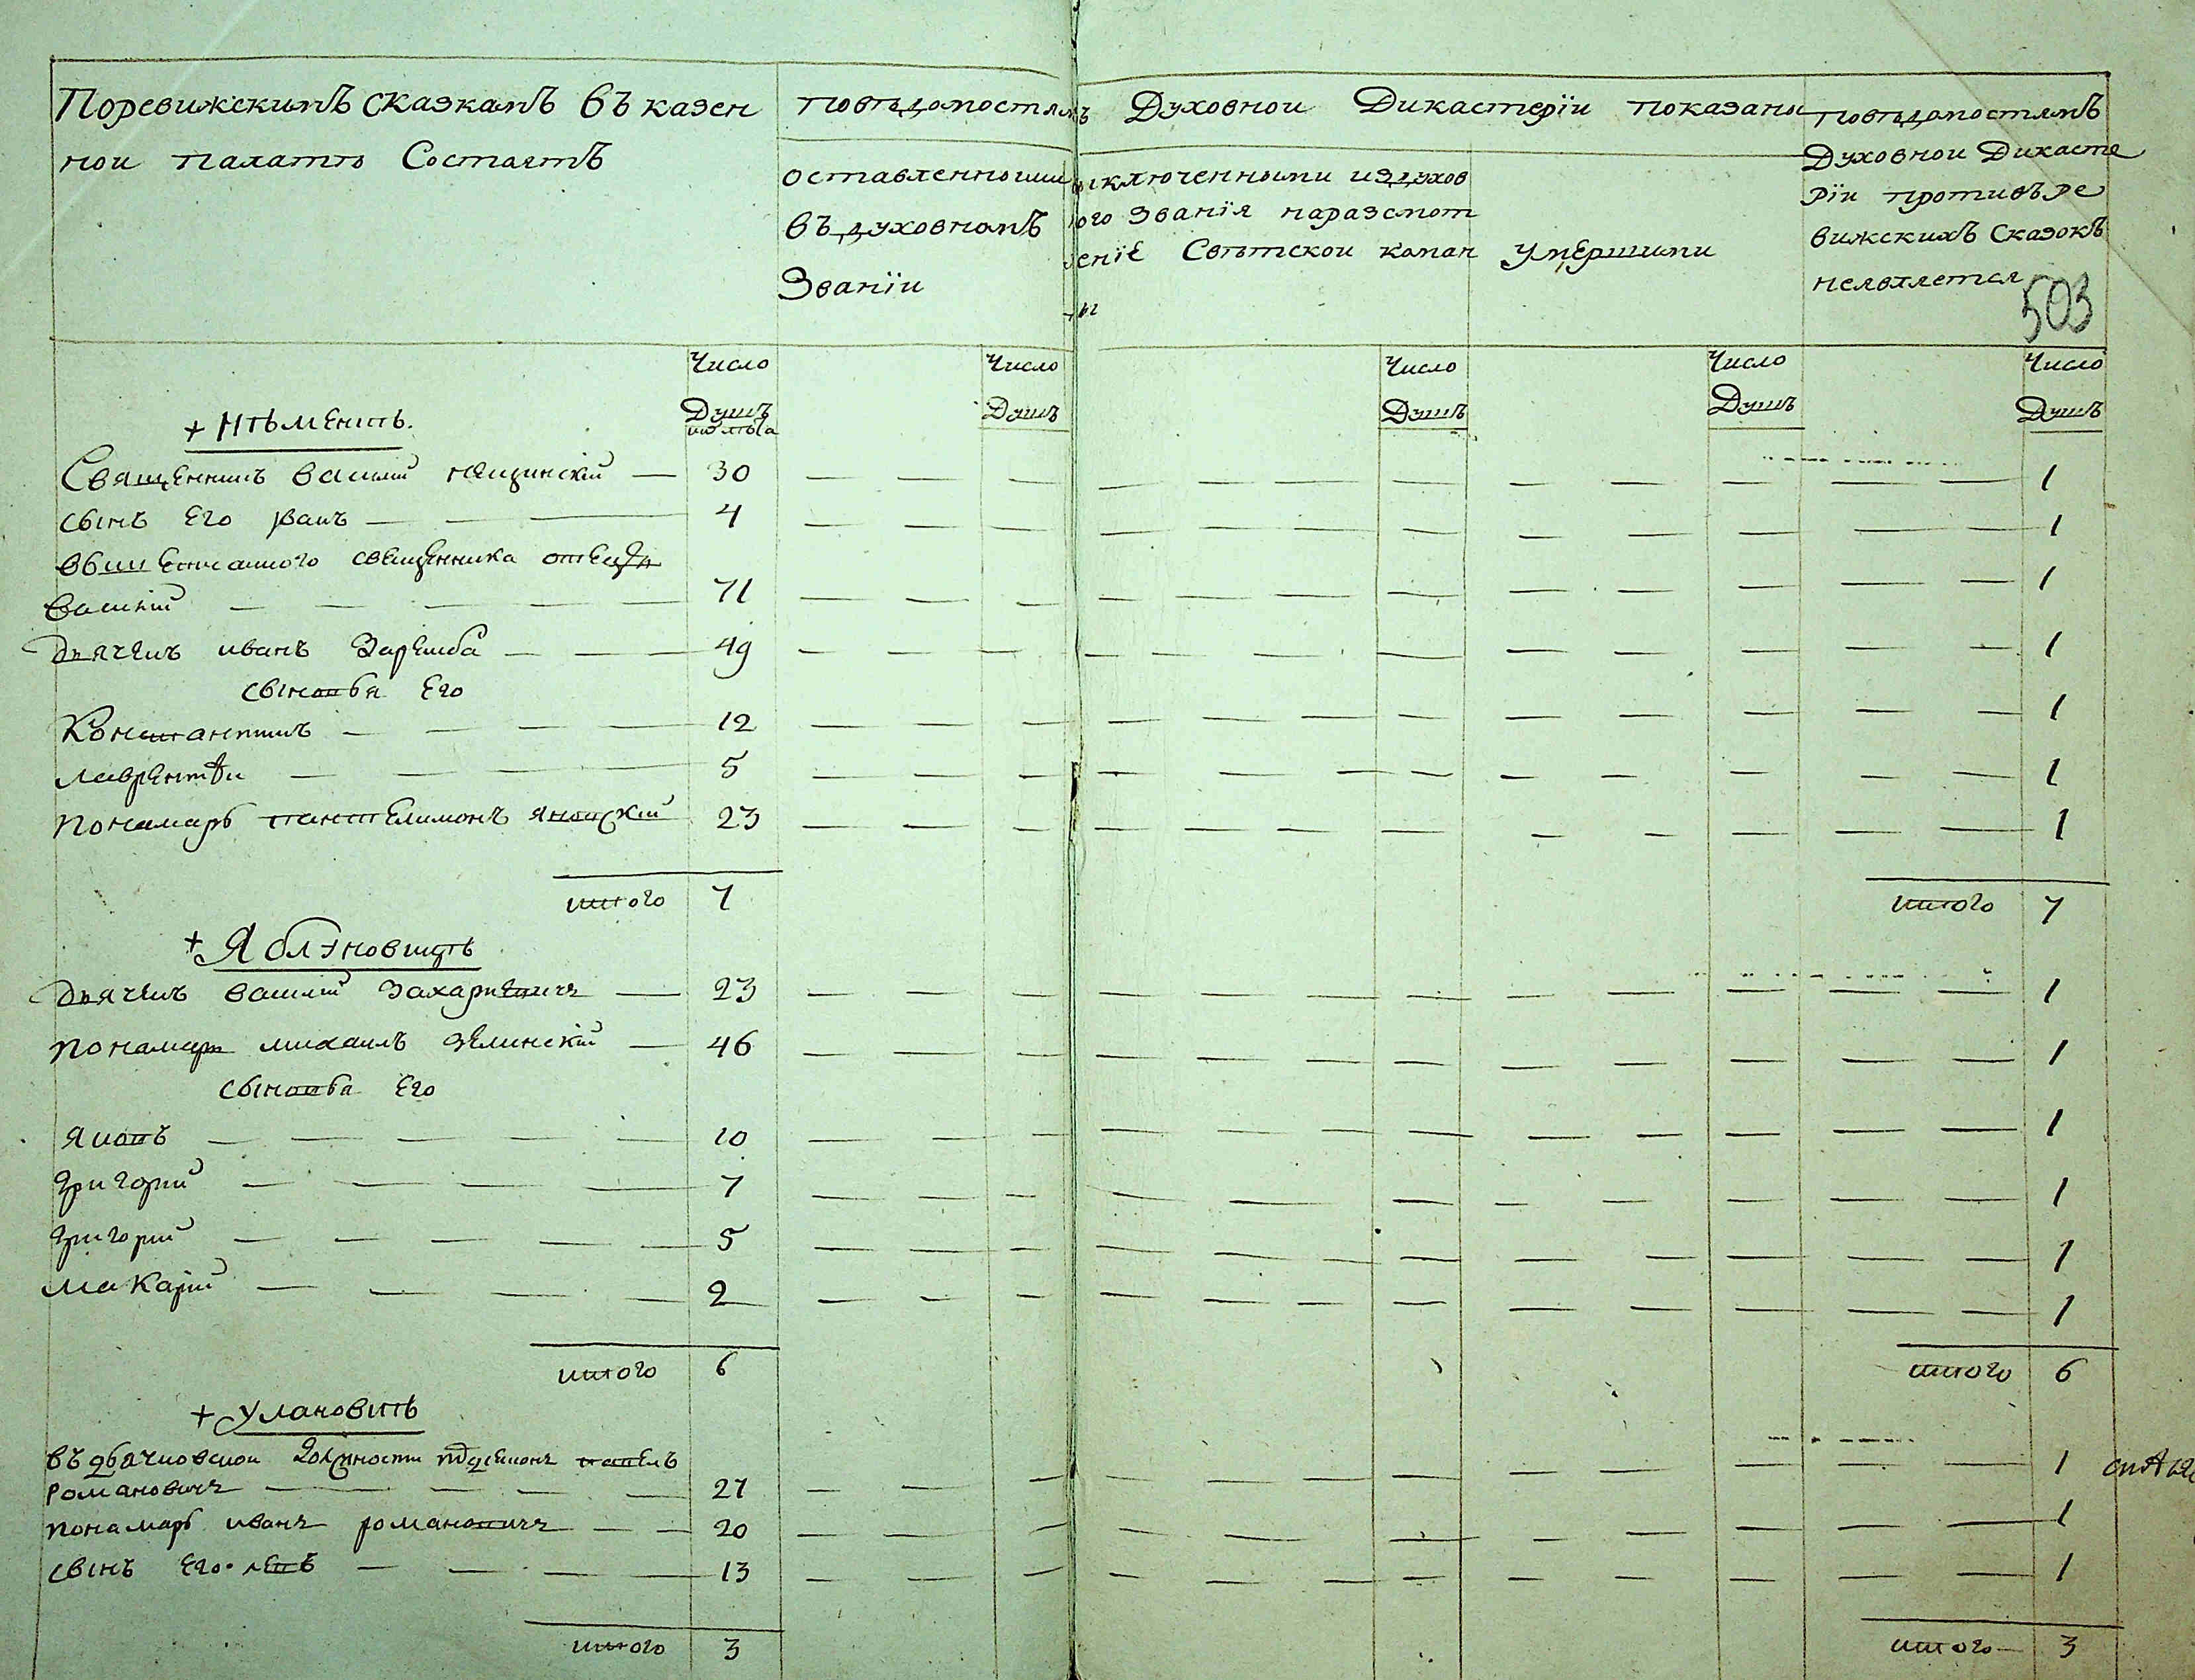 Поревижскимъ сказкамъ въ казен
ной палатѣ Состоятъ
Повѣдомостямъ Духовной Дикастерїи показаны
оставленными
въ духовномъ
Званїи
выключенными из духов
ного Званїя наразсмот
ренїе Свѣтской коман
ды
Умершими
Повѣдомостямъ
Духовной Дикасте
рїи противъ ре
вижскихъ Сказокъ
неявляется
503
Число Душъ Число Душъ Число Душъ Число Душъ Число Душъ
+ Нѣменитъ.
Священникъ василий — 30 — 1
сынъ Его — 4 — 1
вышеписанного священника отецъ
василий — 71 — 1
Дьячекъ иванъ Заремба — 49 — 1
сыновья Его
Константинъ — 12 — 1
лаврентѣи — 5 — 1
пономарь пантелимонъ яновскїй 23 — 1
итого 7 итого 7
+ Яблуновицѣ
Дьячекъ василий Захариевичъ — 23 — 1
пономарь михаилъ Зелинскїй — 46 — 1
сыновья Его
Яковъ — 10 — 1
Григорий — 7 — 1
григорий — 5 — 1
макарий — 2 — 1
итого 6 итого 6
+ Улановитъ
въ дьячковской должности павелъ
романовичъ — 27 — 1
пономарь иванъ романовичъ — 20 — 1
сынъ Его левъ — 13 — 1
итого 3 итого 3